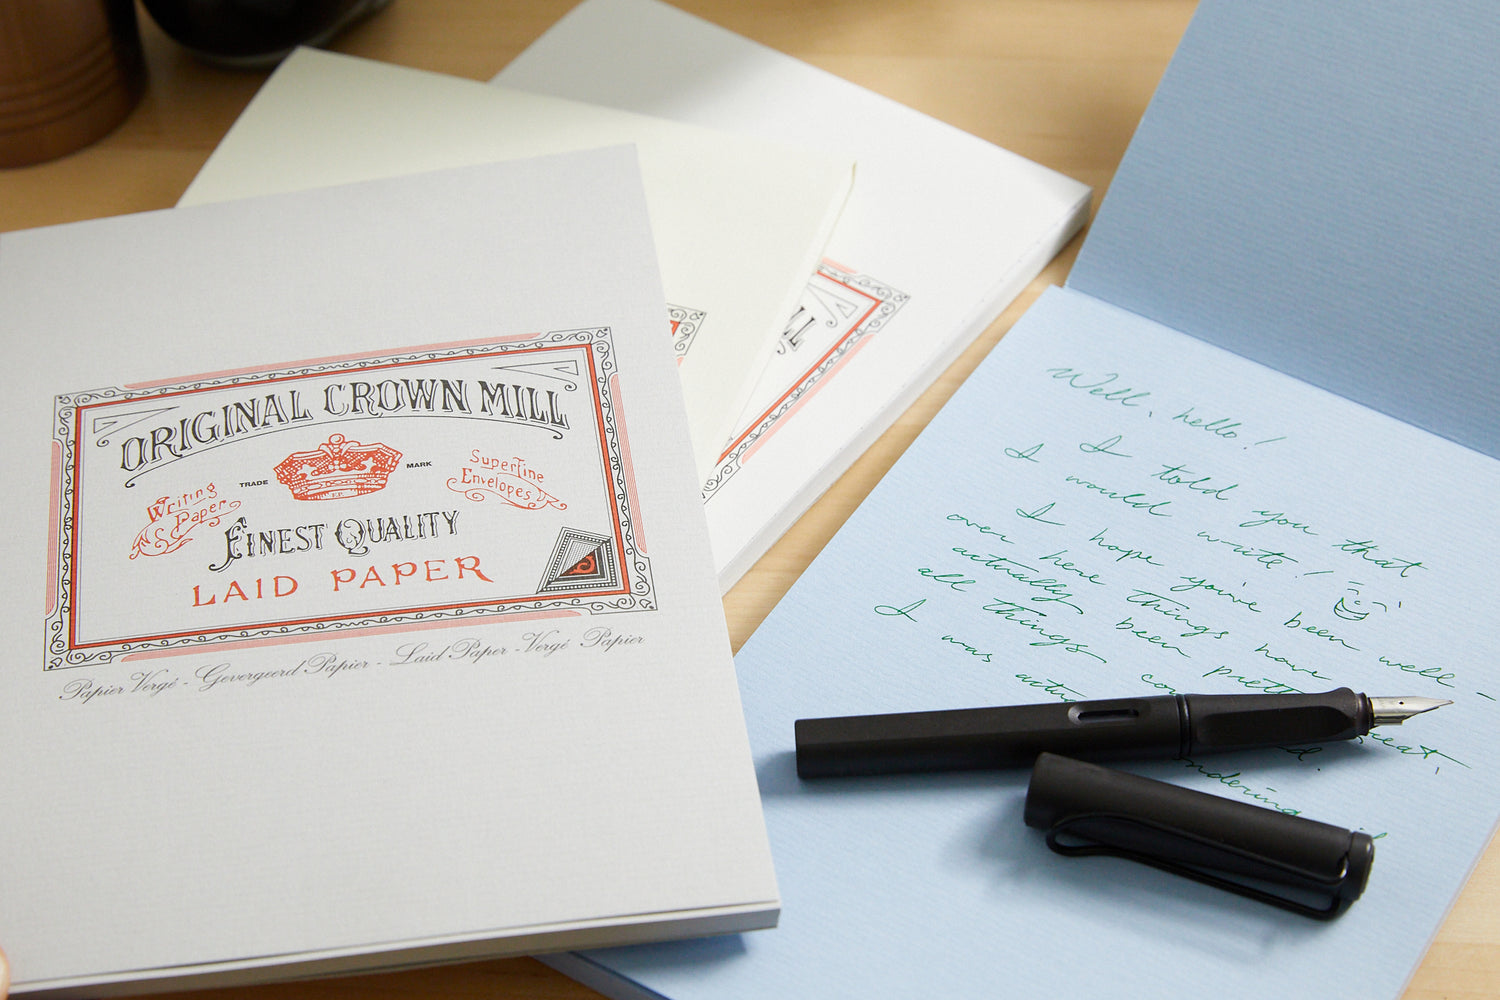 ORIGINAL CROWN MILL
TRADE MARK
Writing Paper
Superfine Envelopes
FINEST QUALITY
LAID PAPER
Papier Vergé - Gevergeerd Papier - Laid Paper - Vergé Papier
Well, hello!
I told you that
I would write!
I hope you've been well -
over here things have
actually been pretty great,
all things
I was